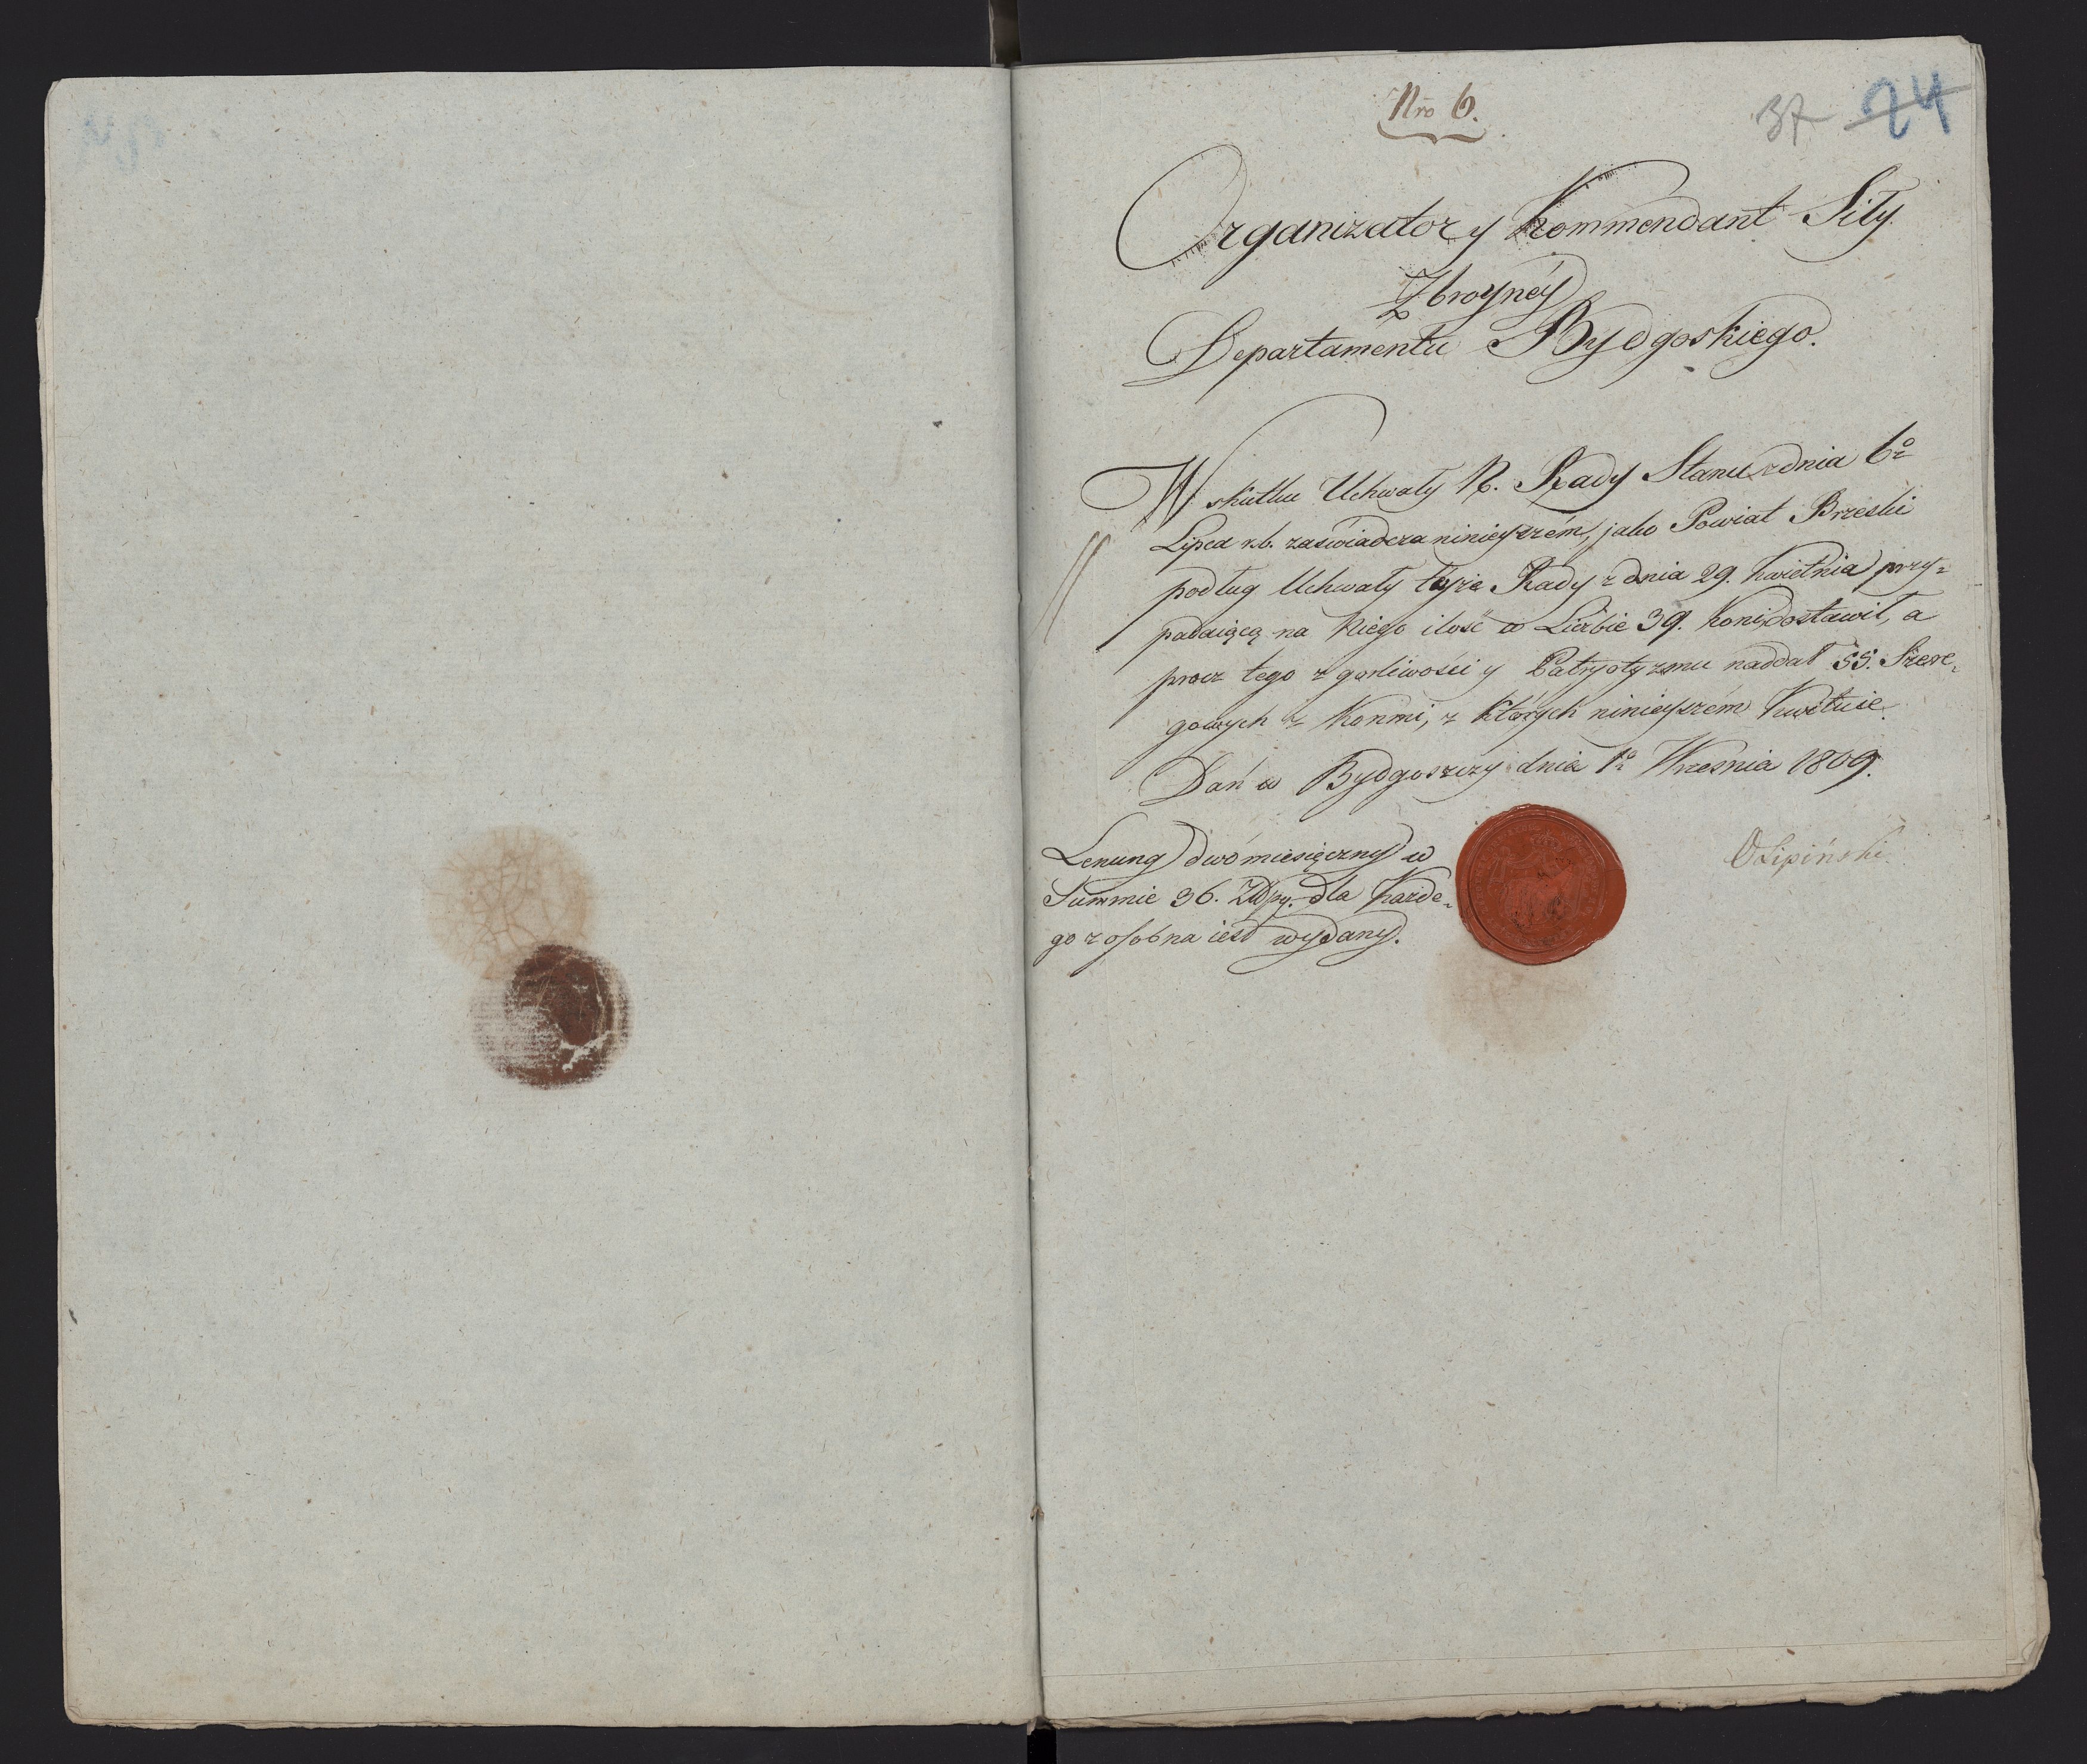 Nro 6.
37 24
Organizator y Kommendant Siły
Zbroyney
Departamentu Bydgoskiego.
W skutku Uchwały R. Rady Stanu z dnia 6º
Lipca r.b. zaświadcza ninieyszém, jako Powiat Brzeski
podług Uchwały teyże Rady z dnia 29. Kwietnia przy=
padaiącą na Niego ilość w Liczbie 39. Koni, dostawił, a
procz tego z gorliwości y Patryotyzmu naddał 55. Szere=
gowych z Konmi, z których ninieyszém Kwituie.
Dań w Bydgoszczy dnia 1º Wrzesnia 1809.
Lenung dwómiesięczny w
Summie 36. Złłpp. dla Każde=
go z osobna iest wydany.
Lipiński